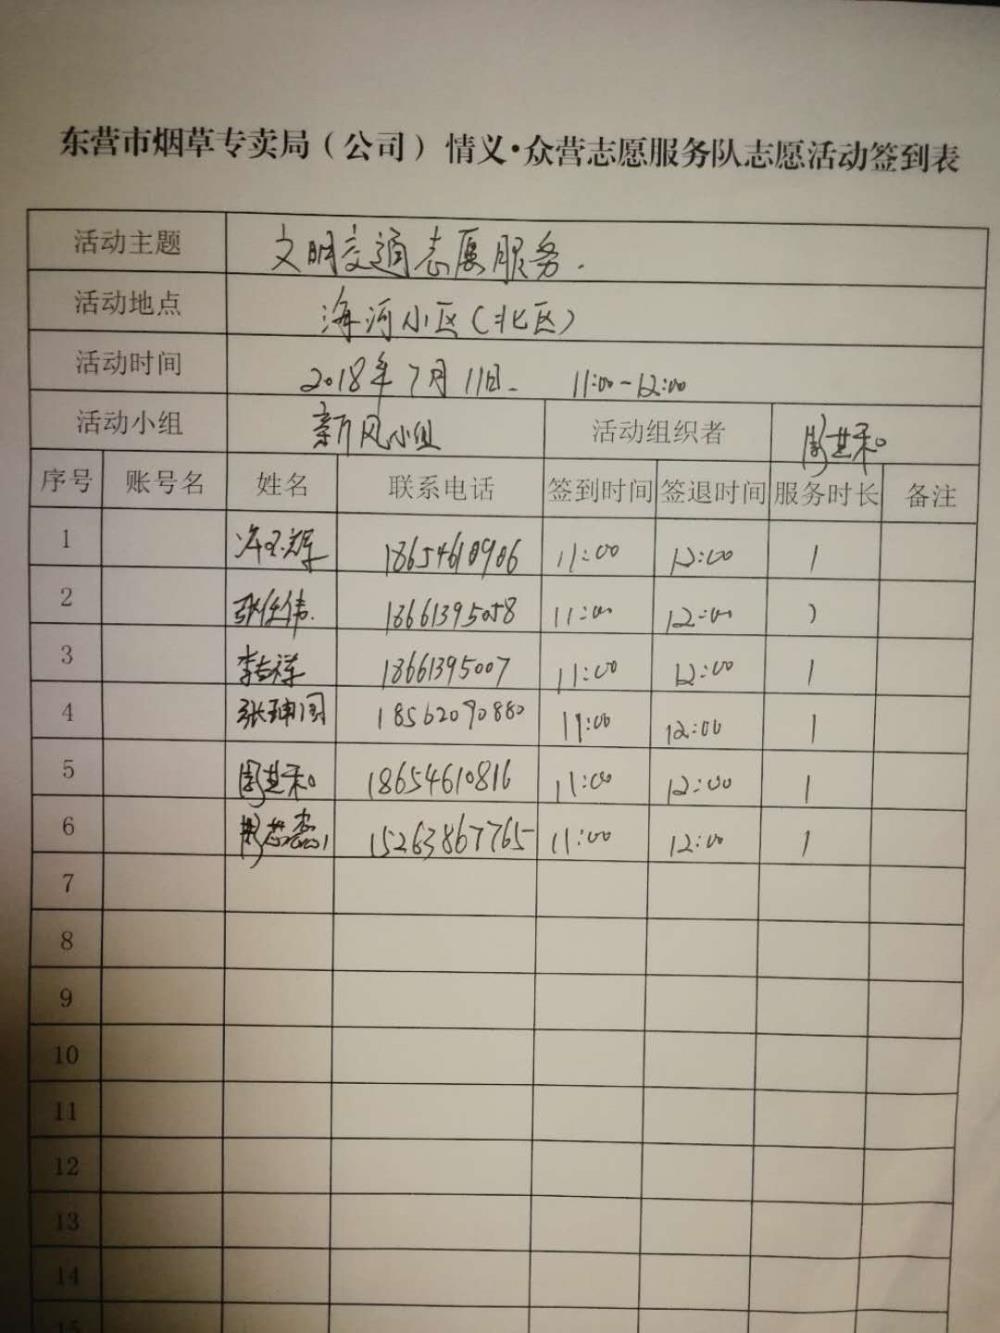 东营市烟草专卖局（公司）情义·众营志愿服务队志愿活动签到表
活动主题 文明交通志愿服务.
活动地点 海河小区(北区)
活动时间 2018年7月11日. 11:00-12:00
活动小组 新风小组 活动组织者
序号 账号名 姓名 联系电话 签到时间 签退时间 服务时长 备注
1 18654610906 11:00 12:00 1
2 张任伟. 18661395058 11:00 12:00 1
3 李吉祥 18661395007 11:00 12:00 1
4 18562090880 11:00 12:00 1
5 18654610816 11:00 12:00 1
6 15263867765 11:00 12:00 1
7
8
9
10
11
12
13
14
15